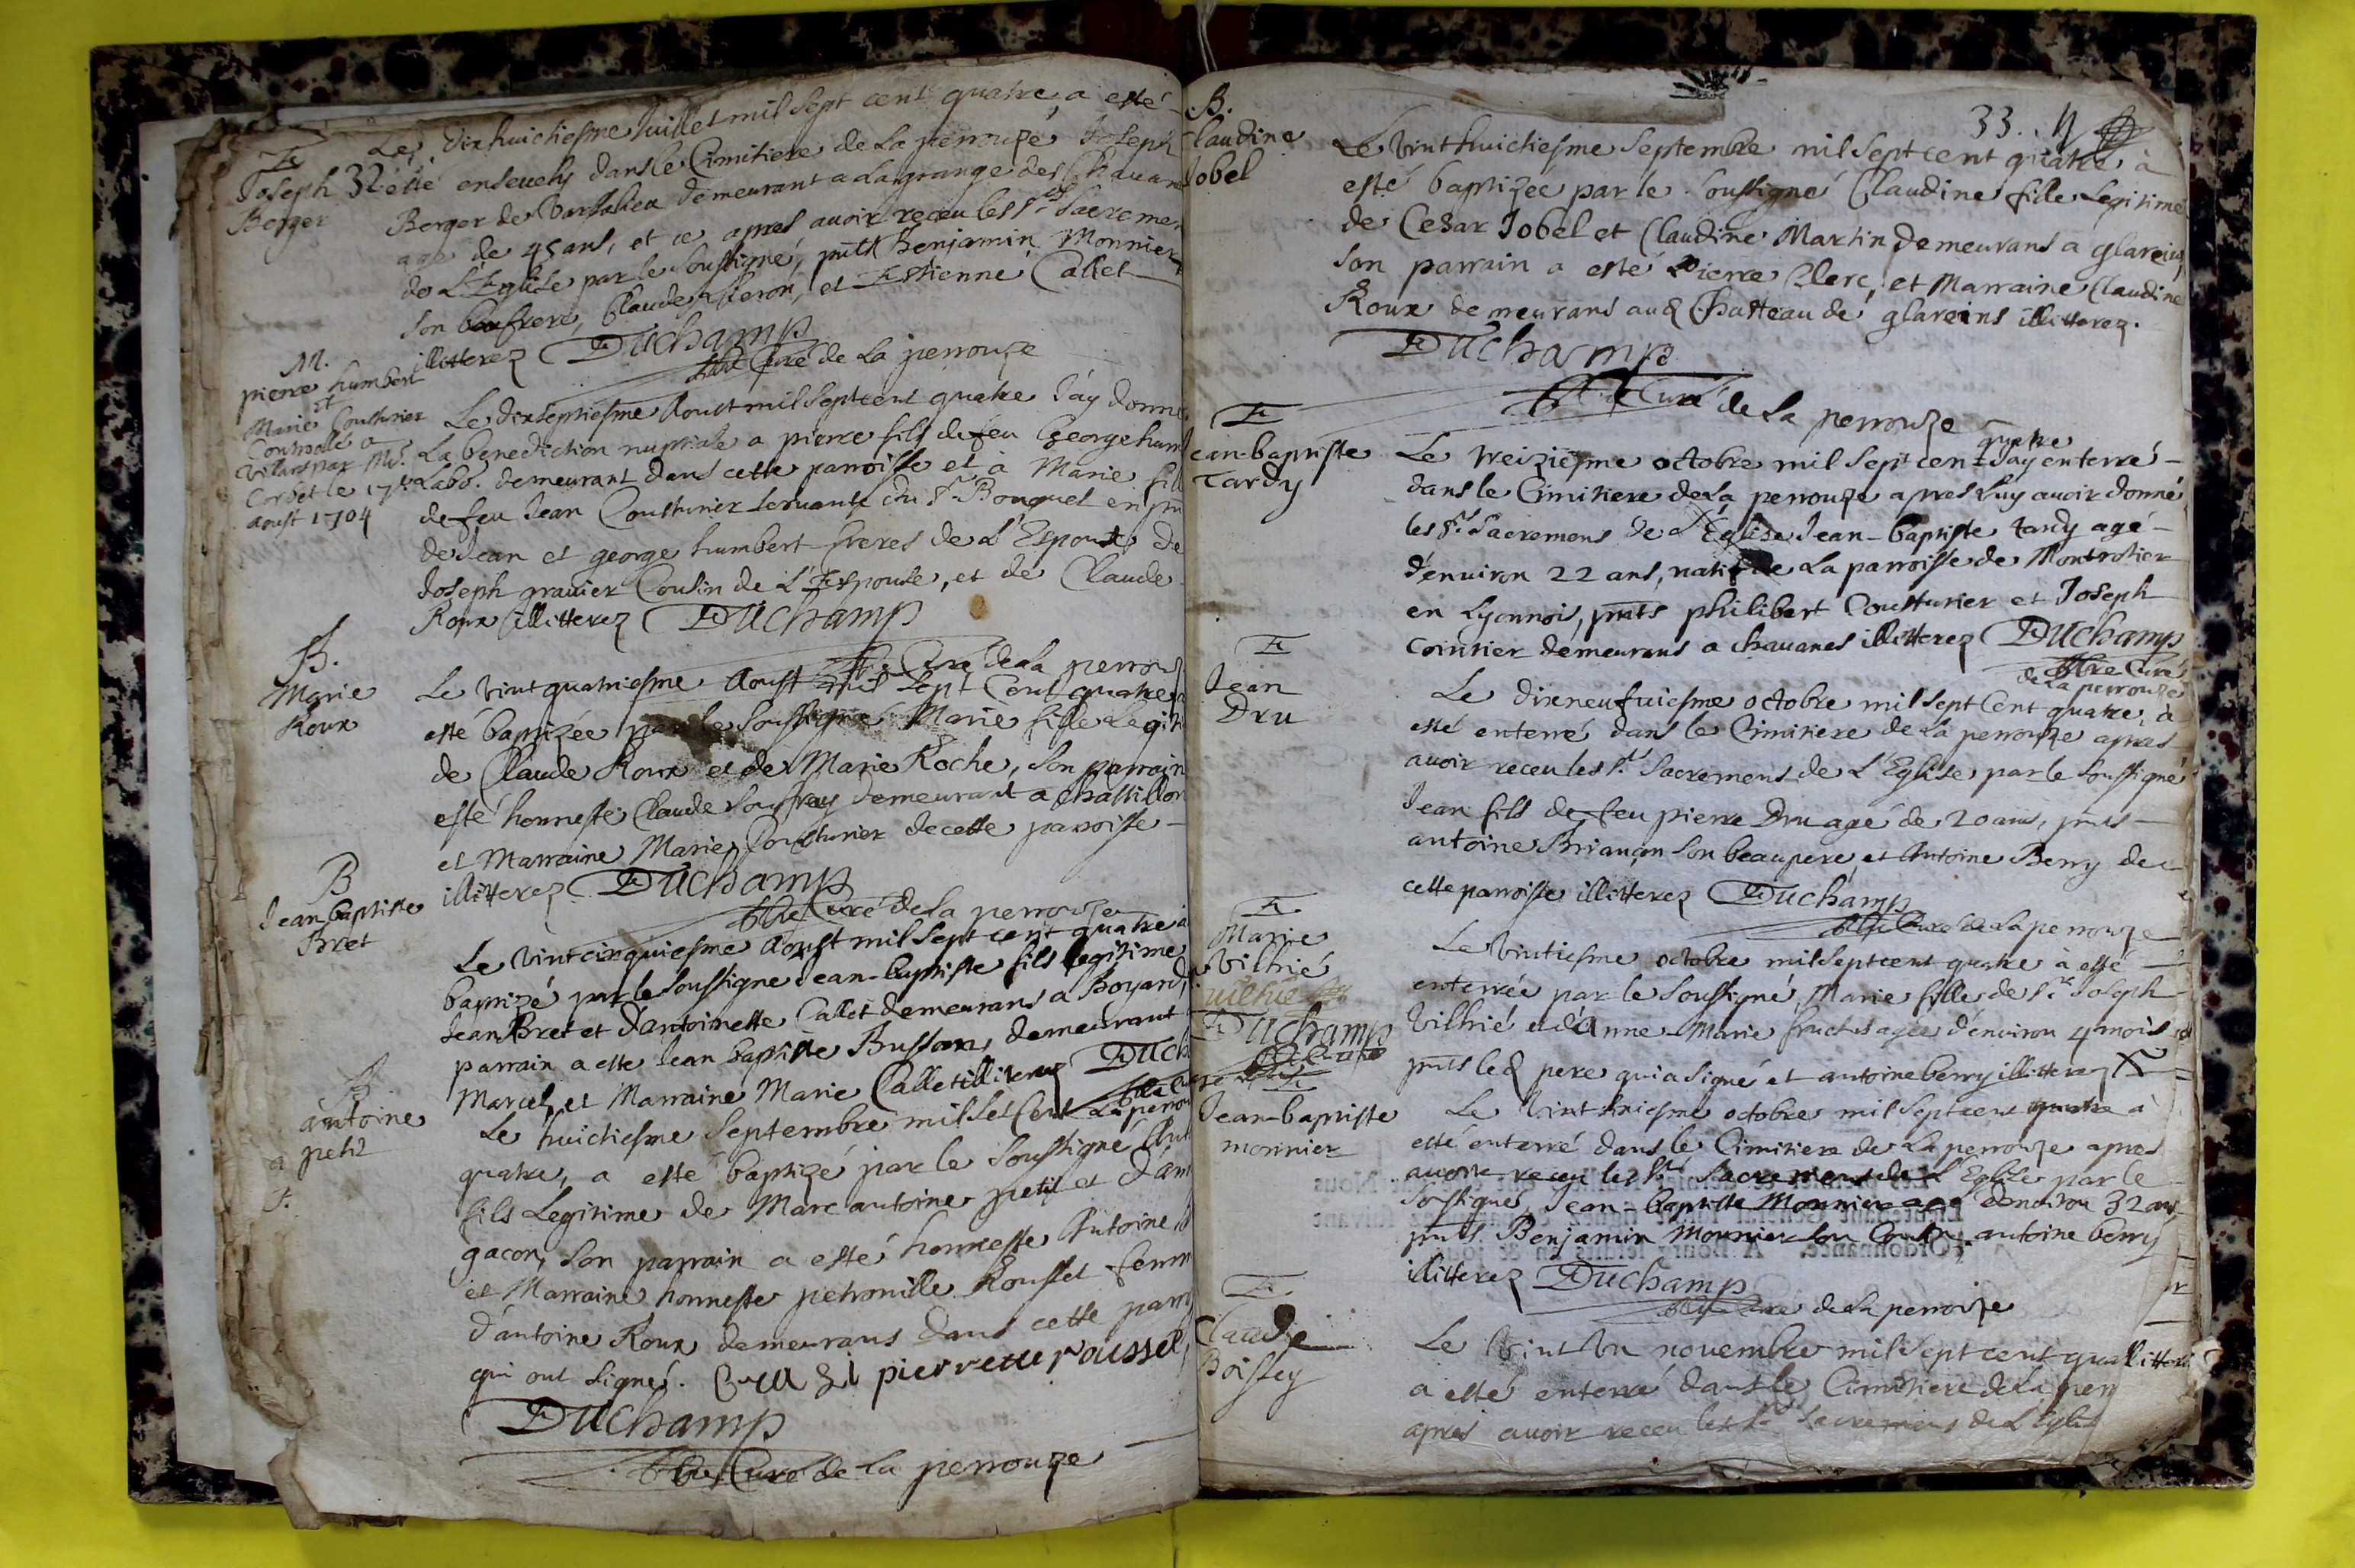 E
Joseph 32
Berger
Le dixhuictiesme Juillet mil sept cent quatre, a esté
esté ensevely dans le Cimitiere de La perrouze Joseph
Berger de demeurant a La grange des Chavan
age de 45 ans, et ce apres avoir receu les Sts Sacremen
de L'Eglise par le soussigné, pnts Benjamin Monnier
son beaufrere, Claude et Estienne Callet
illitterez Duchamp
ptre Curé de La perrouze
M.
pierre humbert
et
Marie Cousturier
Controllé a
Villars par Mr.
Corbet le 17e
Aoust 1704
Le dixseptiesme Aoust mil sept cent quatre J'ay donné
La benediction nuptiale a pierre fils de feu George hum
Labo. demeurant dans cette parroisse et à Marie fill
de feu Jean Cousturier servante du Sr. Bouquet en pn
de Jean et george humbert freres de L'Espoux, de
Joseph gravier Cousin de L'Espouse, et de Claude
Roux illitterez Duchamp
ptre Curé de La perrouz
B.
Marie
Roux
Le vint quatriesme Aoust mil sept Cent quatre a
esté baptizée par le soussigné Marie fille Legiti
de Claude Roux et de Marie Roche, son parrain
esté honneste Claude demeurant a Chastillon
et Marraine Marie Cousturier de cette parroisse
illitterez Duchamp
ptre Curé de La perrouze
B
Jean baptiste
Bret
Le vint cinquiesme Aoust mil sept cent quatre à
baptizé par le soussigné Jean-baptiste fils legitime
Jean Bret et d'antoinette Callet demeurans a Boyard,
parrain a esté Jean baptiste Bussom, demeurant
Marcel, et Marraine Marie Callet illiterez Duch
ptre Cu
La perrou
B
antoine
petit
Le huictiesme Septembre mil set Cent
quatre, a esté baptizé par le soussigné Ant
fils Legitime de Marc antoine petit et d'am
gacon, son parrain a esté honneste Antoine
et Marraine honneste petronille Rousset femm
d'antoine Roux demeurans dans cette parr
qui ont signé. pierrette rousset
Duchamp
ptre Curé de La perrouze
33.
B.
Claudine
Jobel
Le vint huictiesme Septembre mil sept cent quatre à
esté baptizée par le soussigné Claudine fille Legitime
de Cesar Jobel et Claudine Martin demeurans a glareins
son parrain a esté pierre Clerc, et Marraine Claudine
Roux demeurans aud Chatteau de glareins illitterez.
Duchamp
ptre Curé de La perrouze
E
Jean-baptiste
Tardy
quatre
Le treiziesme octobre mil sept cent J'ay enterré
dans le Cimitiere de La perrouze apres Luy avoir donné
les Sts Sacremens de L'Eglise Jean-baptiste tardy agé
d'environ 22 ans, natif de La parroisse de Montrotier
en Lyonnois, pnts philibert Cousturier et Joseph
demeurans a chavanes illitterez Duchamp
ptre Curé
de La perrouze
E
Jean
Dru
Le dixneufuiesme octobre mil sept Cent quatre, a
esté enterré dans le Cimitiere de La perrouze apres
avoir receu les Sts Sacremens de L'Eglise par le soussigné
Jean fils de feu pierre Dru agé de 20 ans, pnts
antoine Briançon son beaupere, et Antoine Berry de
cette parroisse illitterez Duchamp
ptre Curé de La perrouze
E
Marie
Vilhié
vilhie
Duchamp
Le vintiesme octobre mil sept cent quatre à esté
enterrée par le soussigné, Marie fille de Sr Joseph
Vilhié et d'Anne-Marie agée d'environ 4 mois
pnts led pere qui a signé et antoine berry illitterez
Jean-baptiste
monnier
Le vint octobre mil sept cent quatre à
esté enterré dans le Cimitiere de La perrouze apres
avoir receu les Sts Sacremens de L'Eglise par le
soussigné, Jean-baptiste Monnier agé d'environ 32 ans
pnts. Benjamin Monnier son Cousin. antoine berry
illitterez Duchamp
ptre Curé de La perrouze
E.
Claude
Boissey
Le vint un novembre mil sept cent qua
a esté enterré dans le Cimitiere de La perr
apres avoir receu les Sts Sacremens de L'Eglis